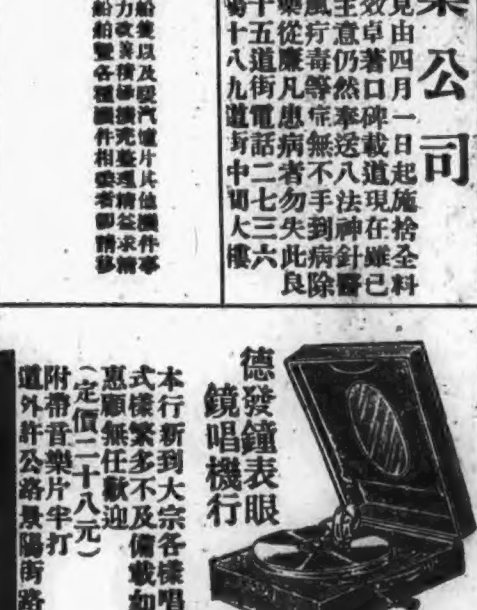 公司
見由四月一日起施捨全料
效卓著口碑載道現在雖已
主意仍然奉送八法神針醫
風疔毒等症無不手到病除
藥從廉凡患病者勿失此良
十五道街電話二七三六
十八九道街中間大樓
船隻以及暖汽爐片其他機件事
力改善積極擴充整理精益求精
船舶暨各種機件相委者卽請移
德發鐘表眼
鏡唱機行
本行新到大宗各樣唱
式樣繁多不及備載如
惠顧無任歡迎
(定價二十八元)
附帶音樂片半打
道外許公路景陽街路